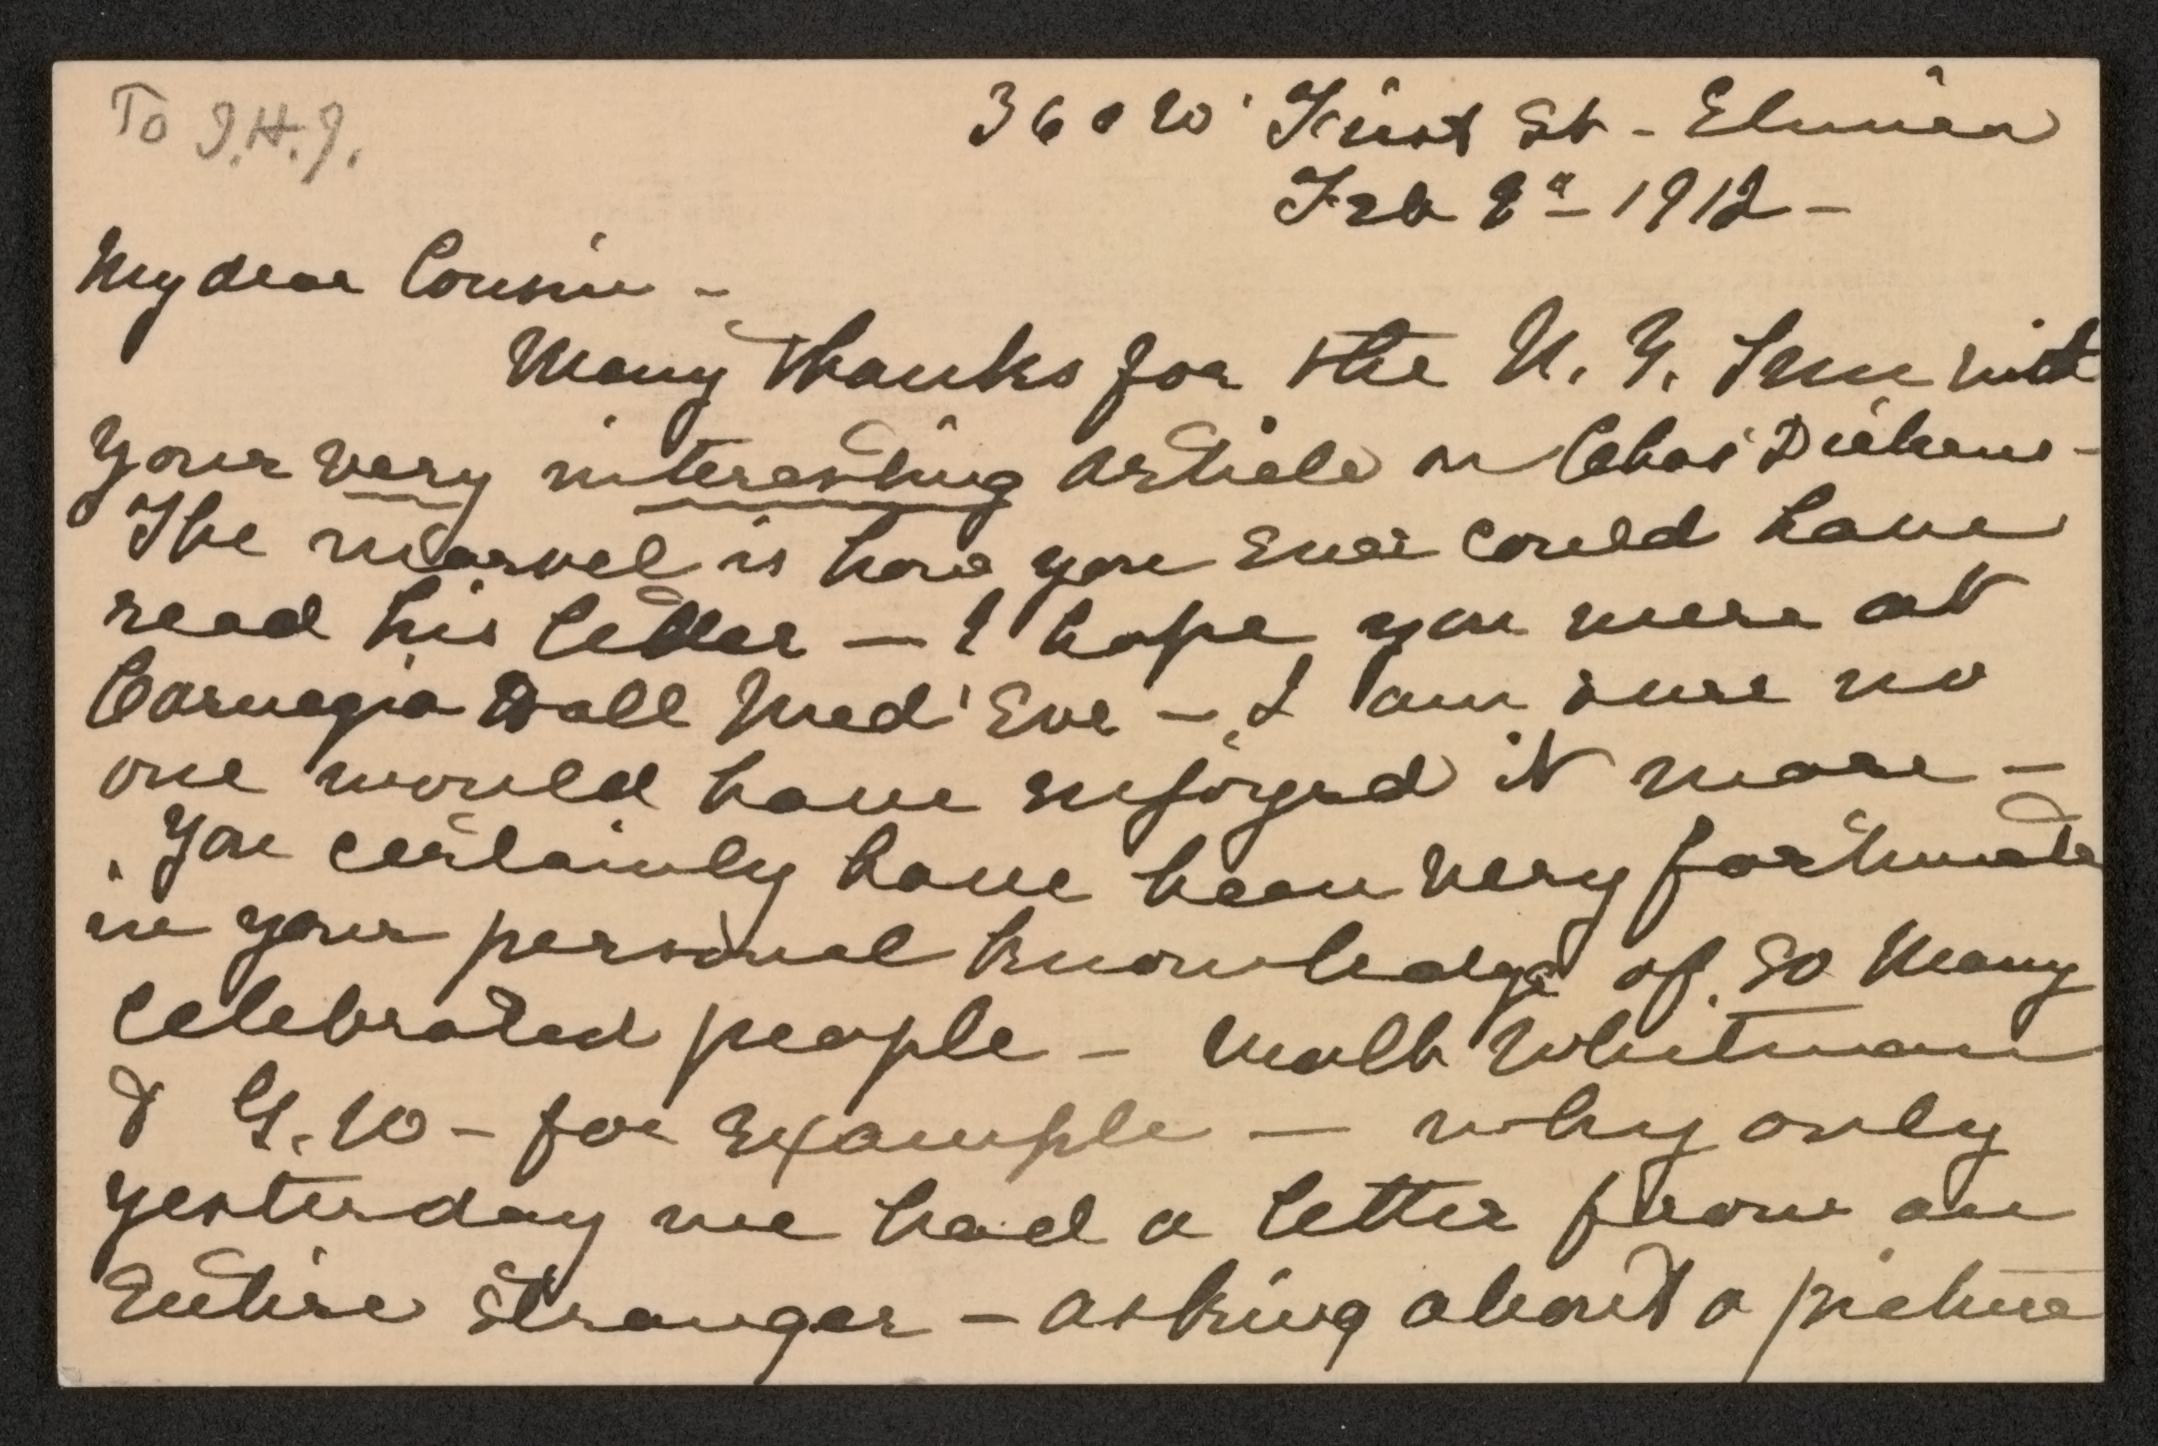 To J.H.J.
360 W. First St - Elmira
Feb 8th 1912 -
My dear Cousin -
Many thanks for the N.Y. Sun with
your very interesting article on Chas Dickens -
The marvel is how you ever could have
read his letter - I hope you were at
Carnegie Hall Wed' Eve - I am sure no
one would have enjoyed it more -
You certainly have been very fortunate
in your personal knowledge of so many
celebrated people - Walt Whitman
& G. W - for example - why only
yesterday we had a letter from an
entire stranger - asking about a picture